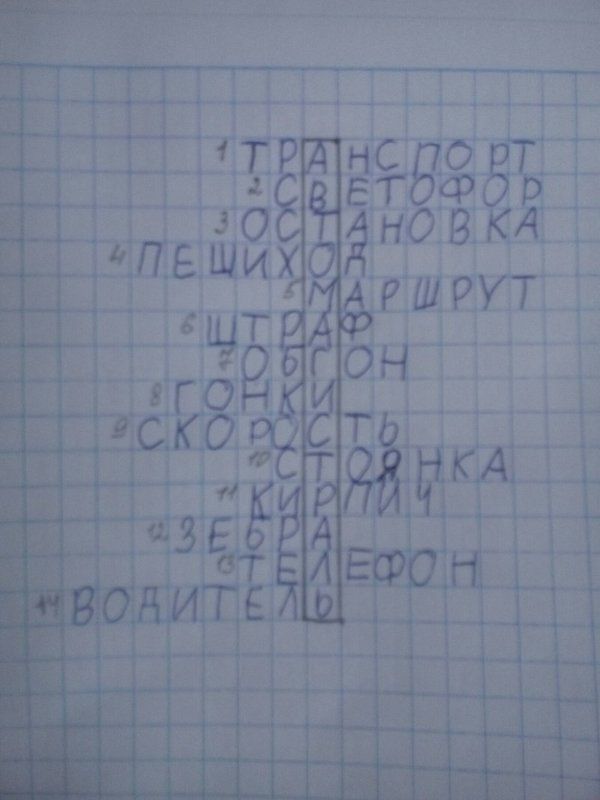 1 ТРАНСПОРТ
2 СВЕТОФОР
3 ОСТАНОВКА
4 ПЕШИХОД
5 МАРШРУТ
6 ШТРАФ
7 ОБГОН
8 ГОНКИ
9 СКОРОСТЬ
10 СТОЯНКА
11 КИРПИЧ
12 ЗЕБРА
13 ТЕЛЕФОН
14 ВОДИТЕЛЬ